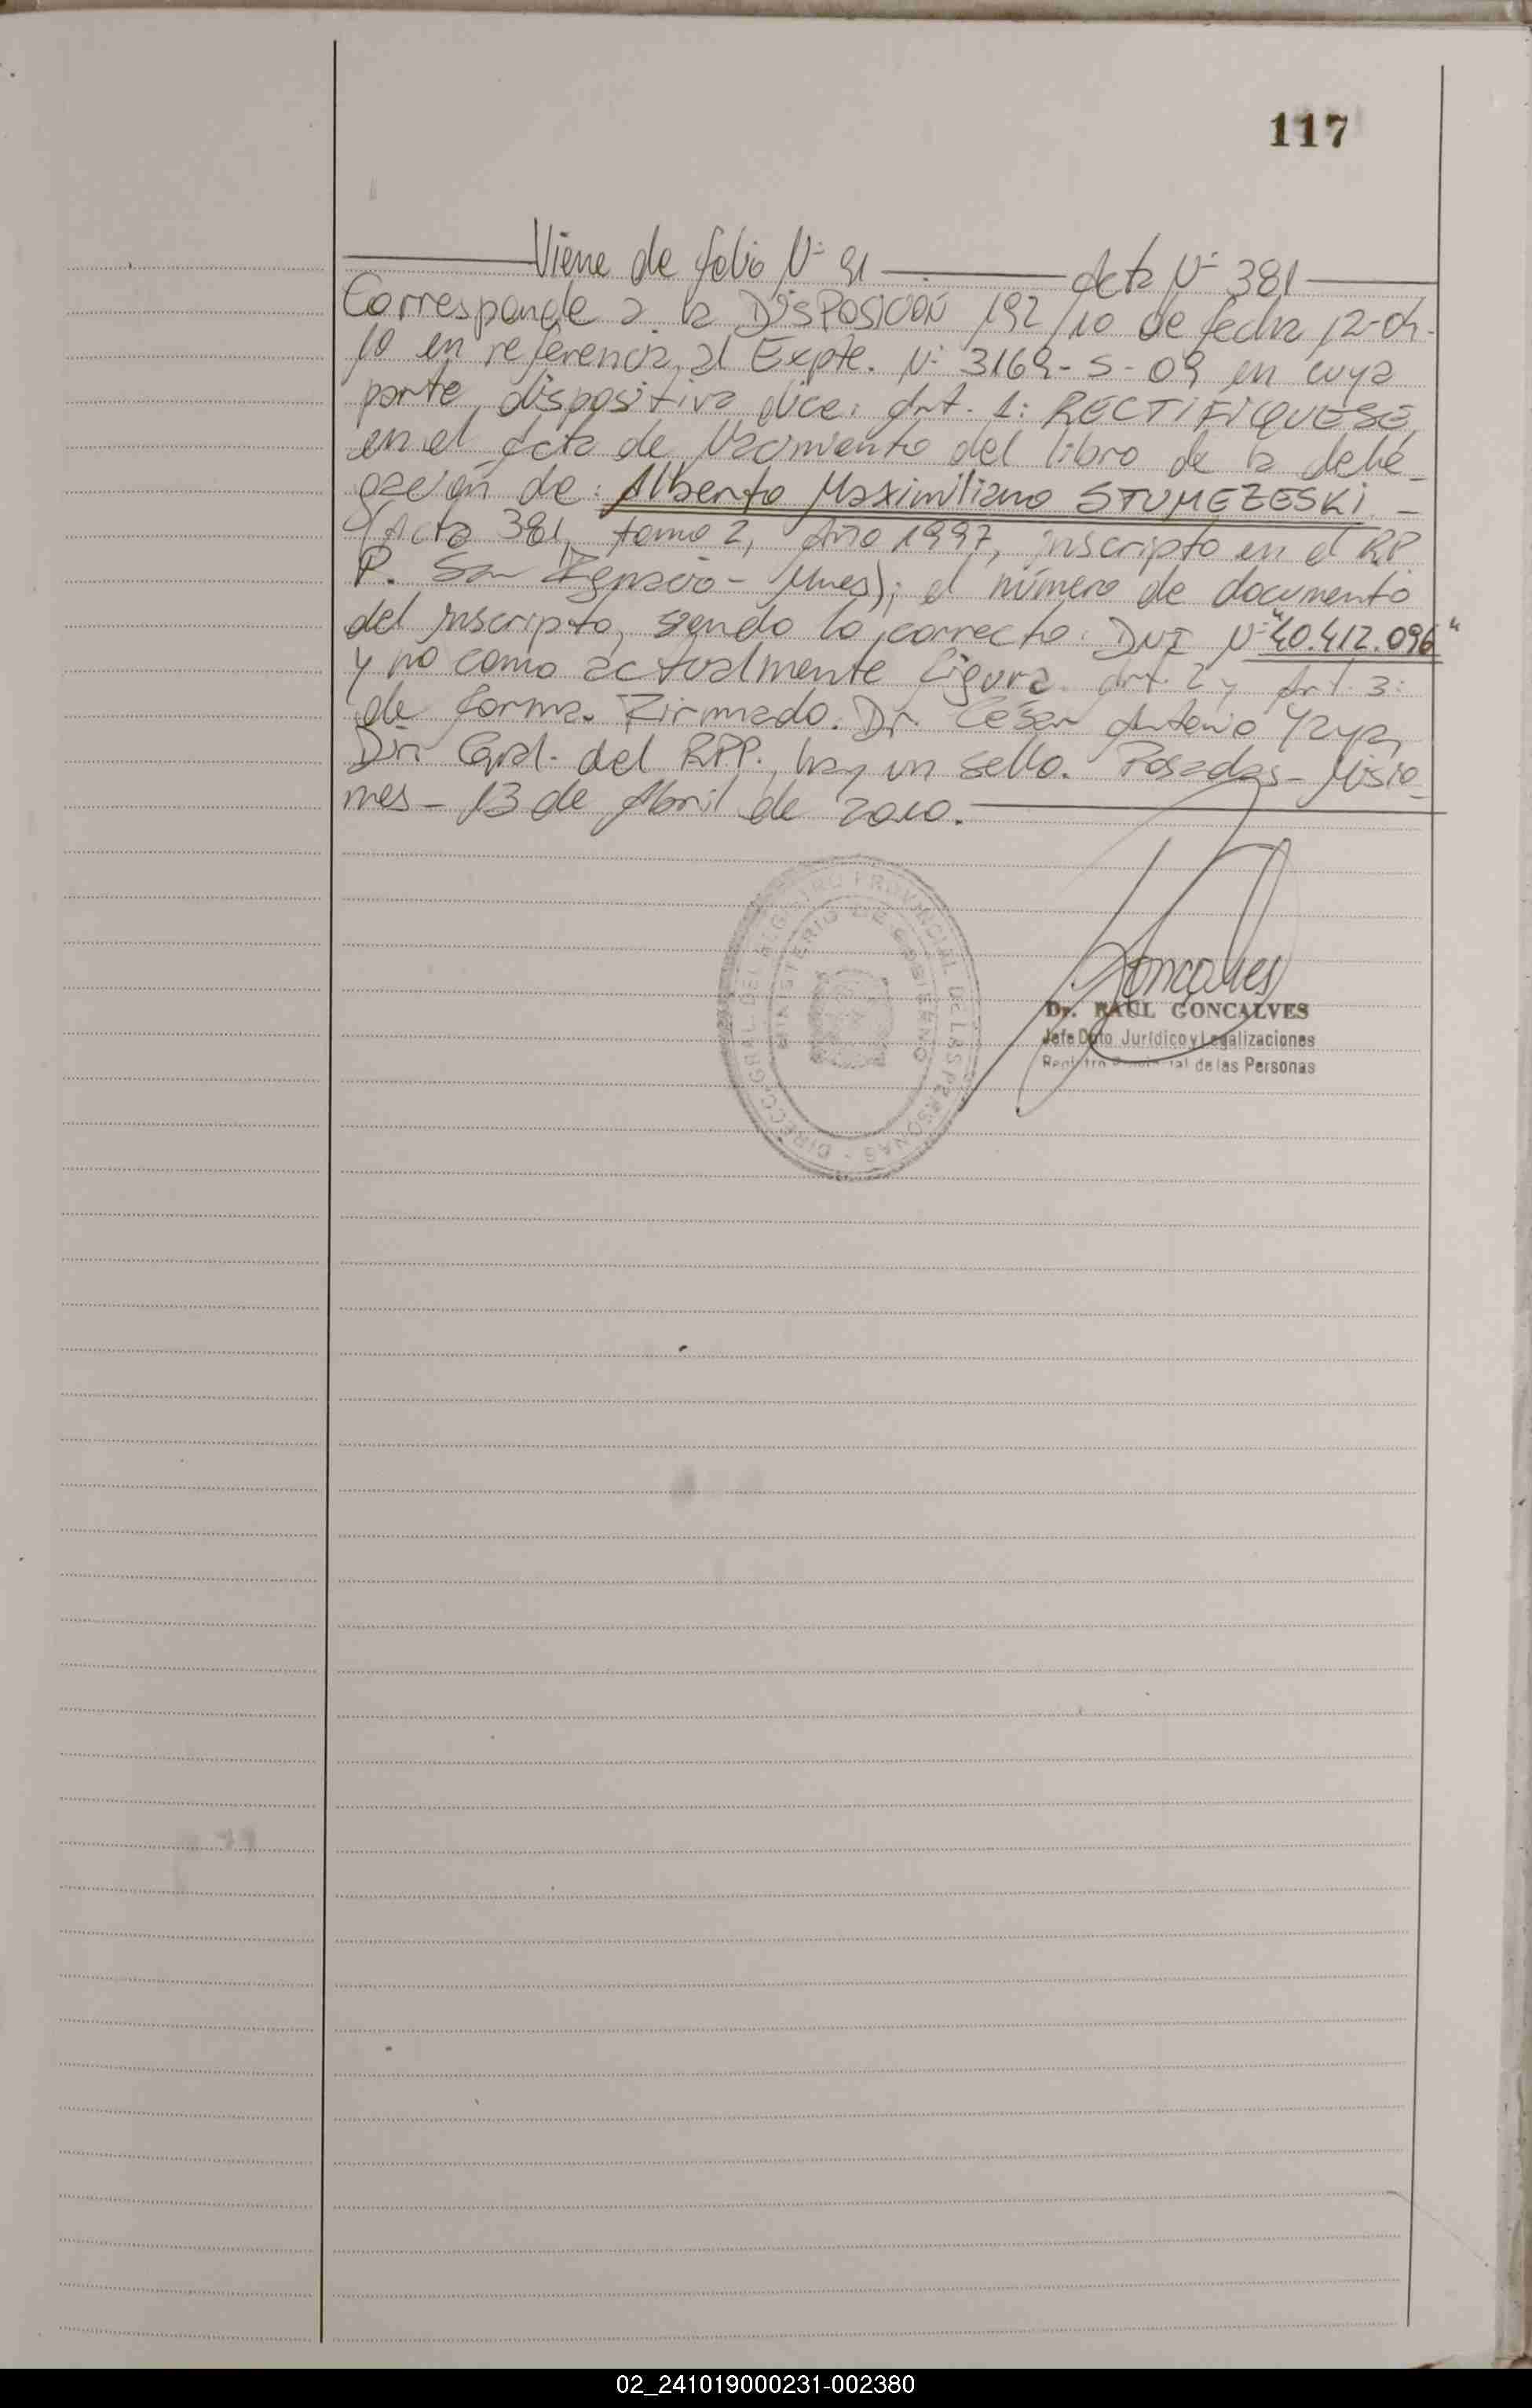 117
Viene de folio Nº 91 Acta Nº 381
Corresponde a la DISPOSICIÓN 192/10 de fecha 12-04-
10 en referencia al Expte. Nº 3169-S-09 en cuya
parte dispositiva dice: Art. 1: RECTIFIQUESE,
en el Acta de Nacimiento del libro de la dele
gación de: Alberto Maximiliano STUMEZESKI. -
(Acta 381, tomo 2, Año 1997, inscripto en el RP.
P. San Ignacio - Mnes); el número de documento
del inscripto, siendo lo correcto: DNI Nº "40.412.096"
y no como actualmente figura. Art. 2 y Art. 3:
de forma. Firmado. Dr. César Antonio Yaya,
Dir. Gral. del RPP., hay un sello. Posadas - Misio_
nes - 13 de Abril de 2010.
DIRECC. GRAL. DEL REGISTRO PROVINCIAL DE LAS PERSONAS
MINISTERIO DE GOBIERNO
Goncalves
Dr. RAUL GONCALVES
Jefe Dpto Jurídico y Legalizaciones
Registro Provincial de las Personas
02_241019000231-002380